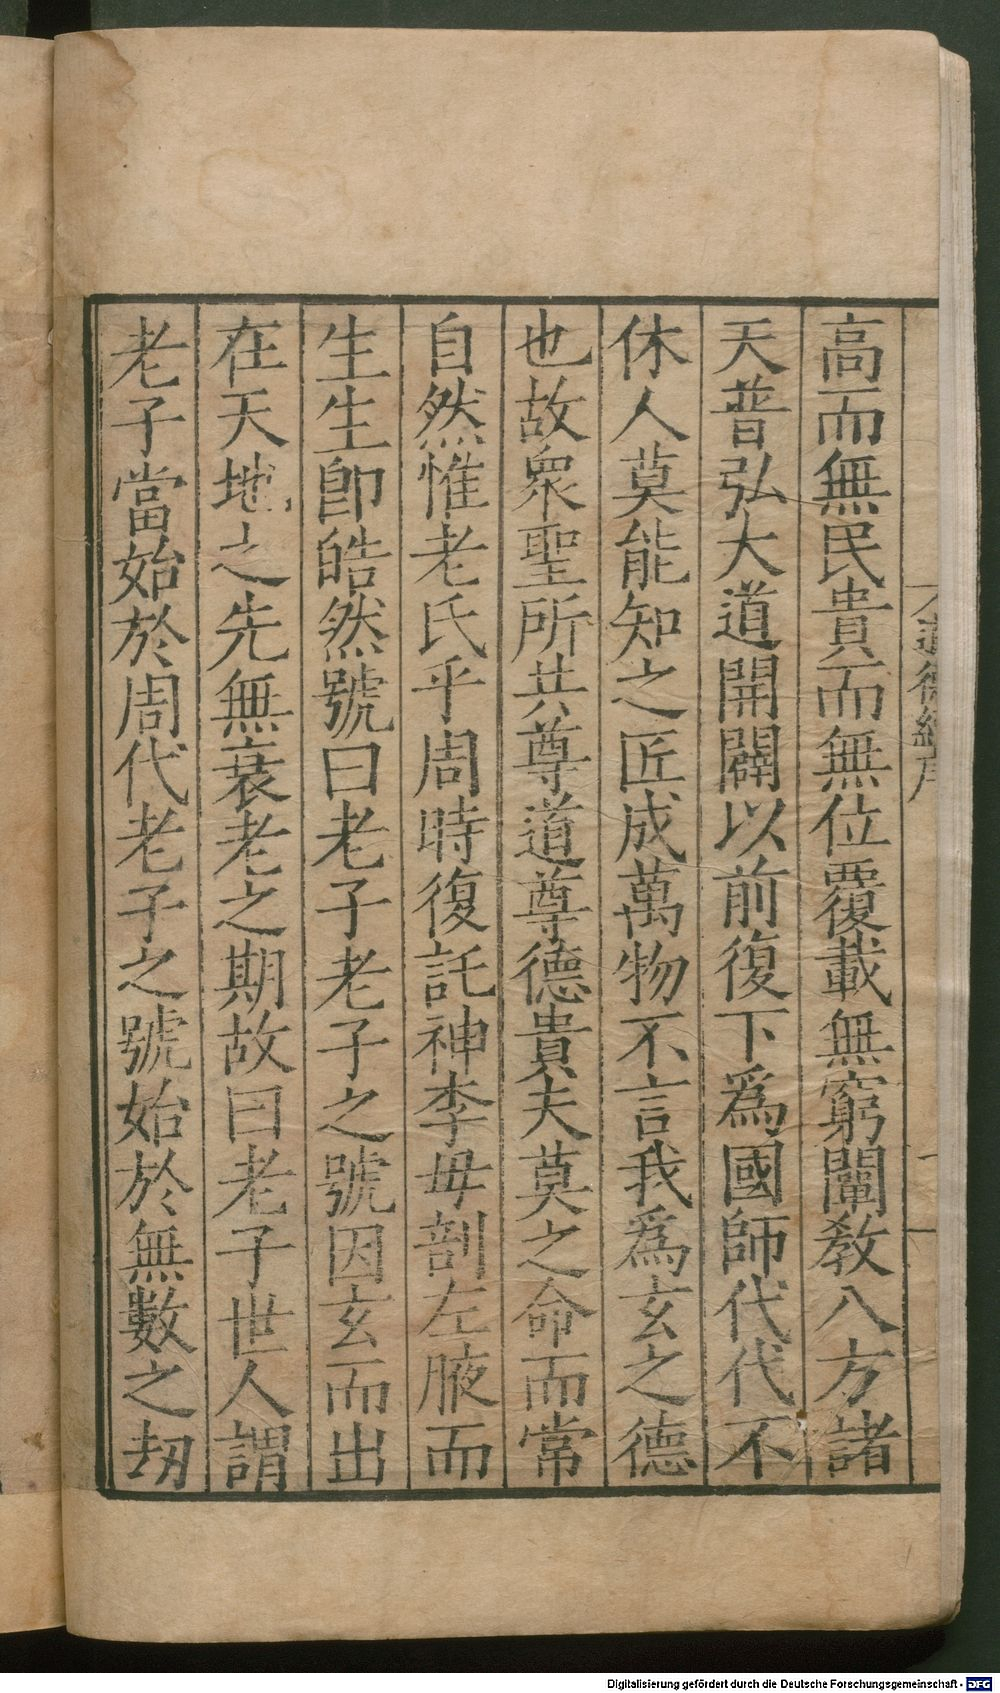 道德經序
高而無民貴而無位覆載無窮闡教八方諸
天普弘大道開闢以前復下爲國師代代不
休人莫能知之匠成萬物不言我爲玄之德
也故衆聖所共尊道尊德貴夫莫之命而常
自然惟老氏乎周時復託神李毋剖左腋而
生生卽皓然號曰老子老子之號因玄而出
在天地之先無衰老之期故曰老子世人謂
老子當始於周代老子之號始於無數之刼
Digitalisierung gefördert durch die Deutsche Forschungsgemeinschaft - DFG